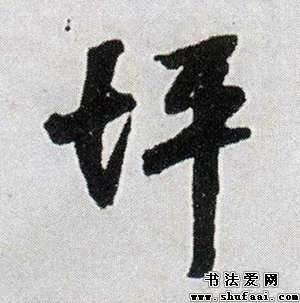 坪
书法爱网
www.shufaai.com